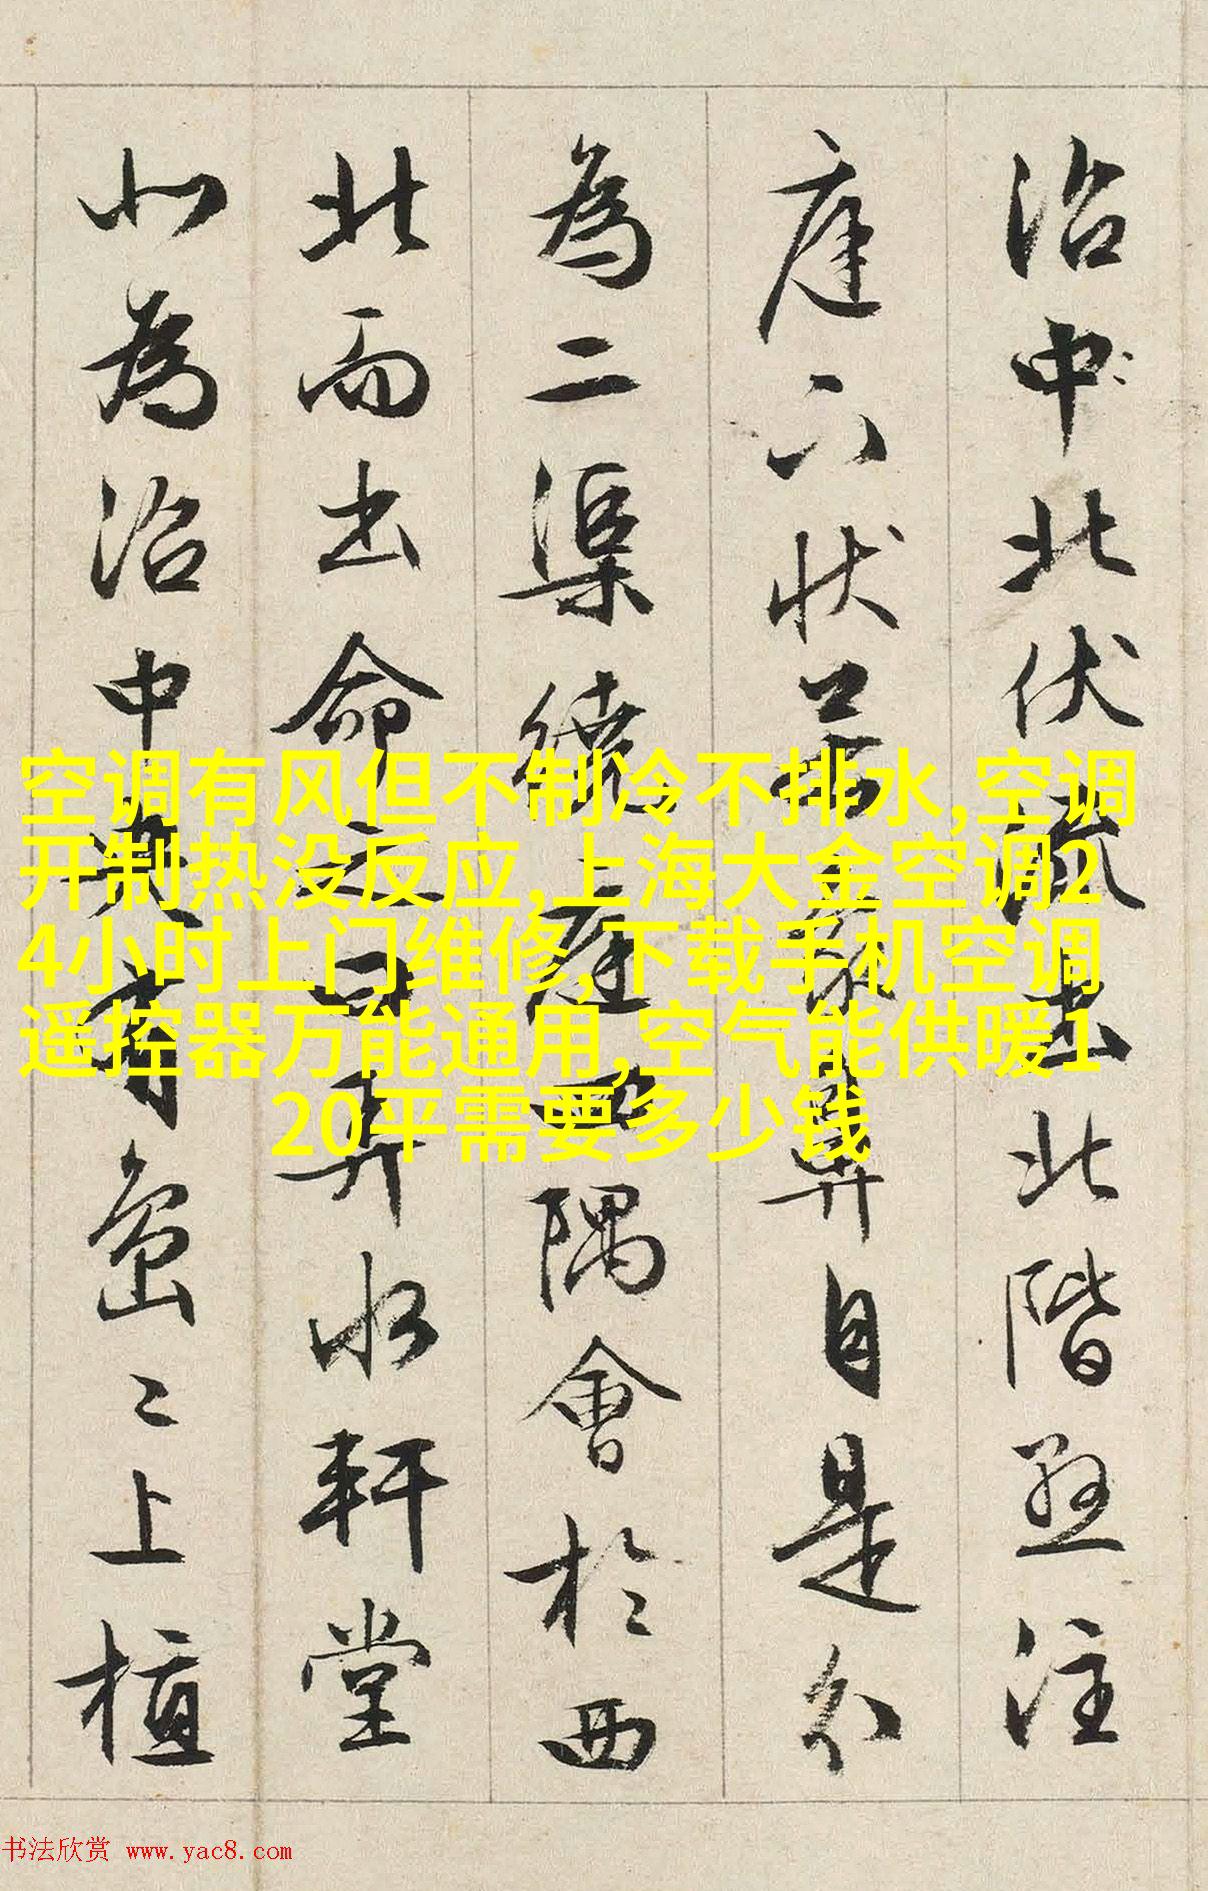 沼中〻北伏流出北階懸注
庭下狀若象鼻自是分
為二渠繞庭四隅會於西
北而出命之曰弄水軒堂
北為沼中央有島〻上植
空调有风但不制冷不排水,空调
开制热没反应,上海大金空调2
4小时上门维修,下载手机空调
遥控器万能通用,空气能供暖1
20平需要多少钱
书法欣赏 www.yac8.com